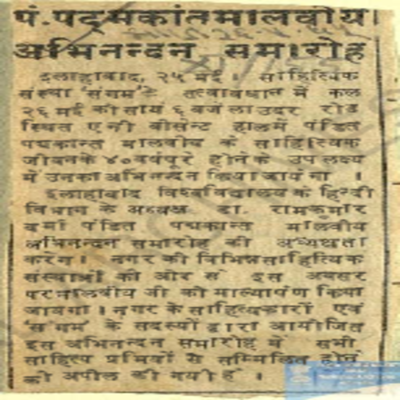 पं. पद्मकांत मालवीय
अभिनन्दन समारोह
इलाहाबाद, २५ मई। साहित्यिक
संस्था 'संगम' के तत्वावधान में कल
२६ मई को सायं ६ बजे लाउदर रोड
स्थित एनी बीसेन्ट हाल में पंडित
पद्मकान्त मालवीय के साहित्यिक
जीवन के ४० वर्ष पूरे होने के उपलक्ष्य
में उनका अभिनन्दन किया जायेगा ।
इलाहाबाद विश्वविद्यालय के हिन्दी
विभाग के अध्यक्ष डा. रामकुमार
वर्मा पंडित पद्मकान्त मालवीय
अभिनन्दन समारोह की अध्यक्षता
करेंगे। नगर की विभिन्न साहित्यिक
संस्थाओं की ओर से इस अवसर
पर मालवीय जी को माल्यार्पण किया
जायगा। नगर के साहित्यकारों एवं
'संगम' के सदस्यों द्वारा आयोजित
इस अभिनन्दन समारोह में सभी
साहित्य प्रेमियों से सम्मिलित होने
की अपील की गयी है ।